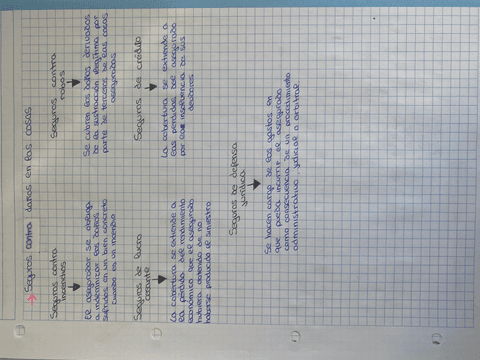 → Seguros contra daños en las cosas
Seguros contra
incendios
El asegurador se obliga
a indemnizar los daños
sufridos en un bien concreto
cuando es un incendio
Seguros contra
robos
Se cubren los daños derivados
de la sustracción ilegítima por
parte de terceros de las cosas
aseguradas
Seguros de lucro
cesante
La cobertura se extiende a
la pérdida del rendimiento
económico que el asegurado
hubiera obtenido de no
haberse producido el siniestro
Seguros de crédito
La cobertura se extiende a
las pérdidas del asegurado
por una insolvencia de sus
deudores.
Seguros de defensa
jurídica
Se hacen cargo de los gastos en
que pueda incurrir el asegurado
como consecuencia de un procedimiento
administrativo, judicial o arbitral.